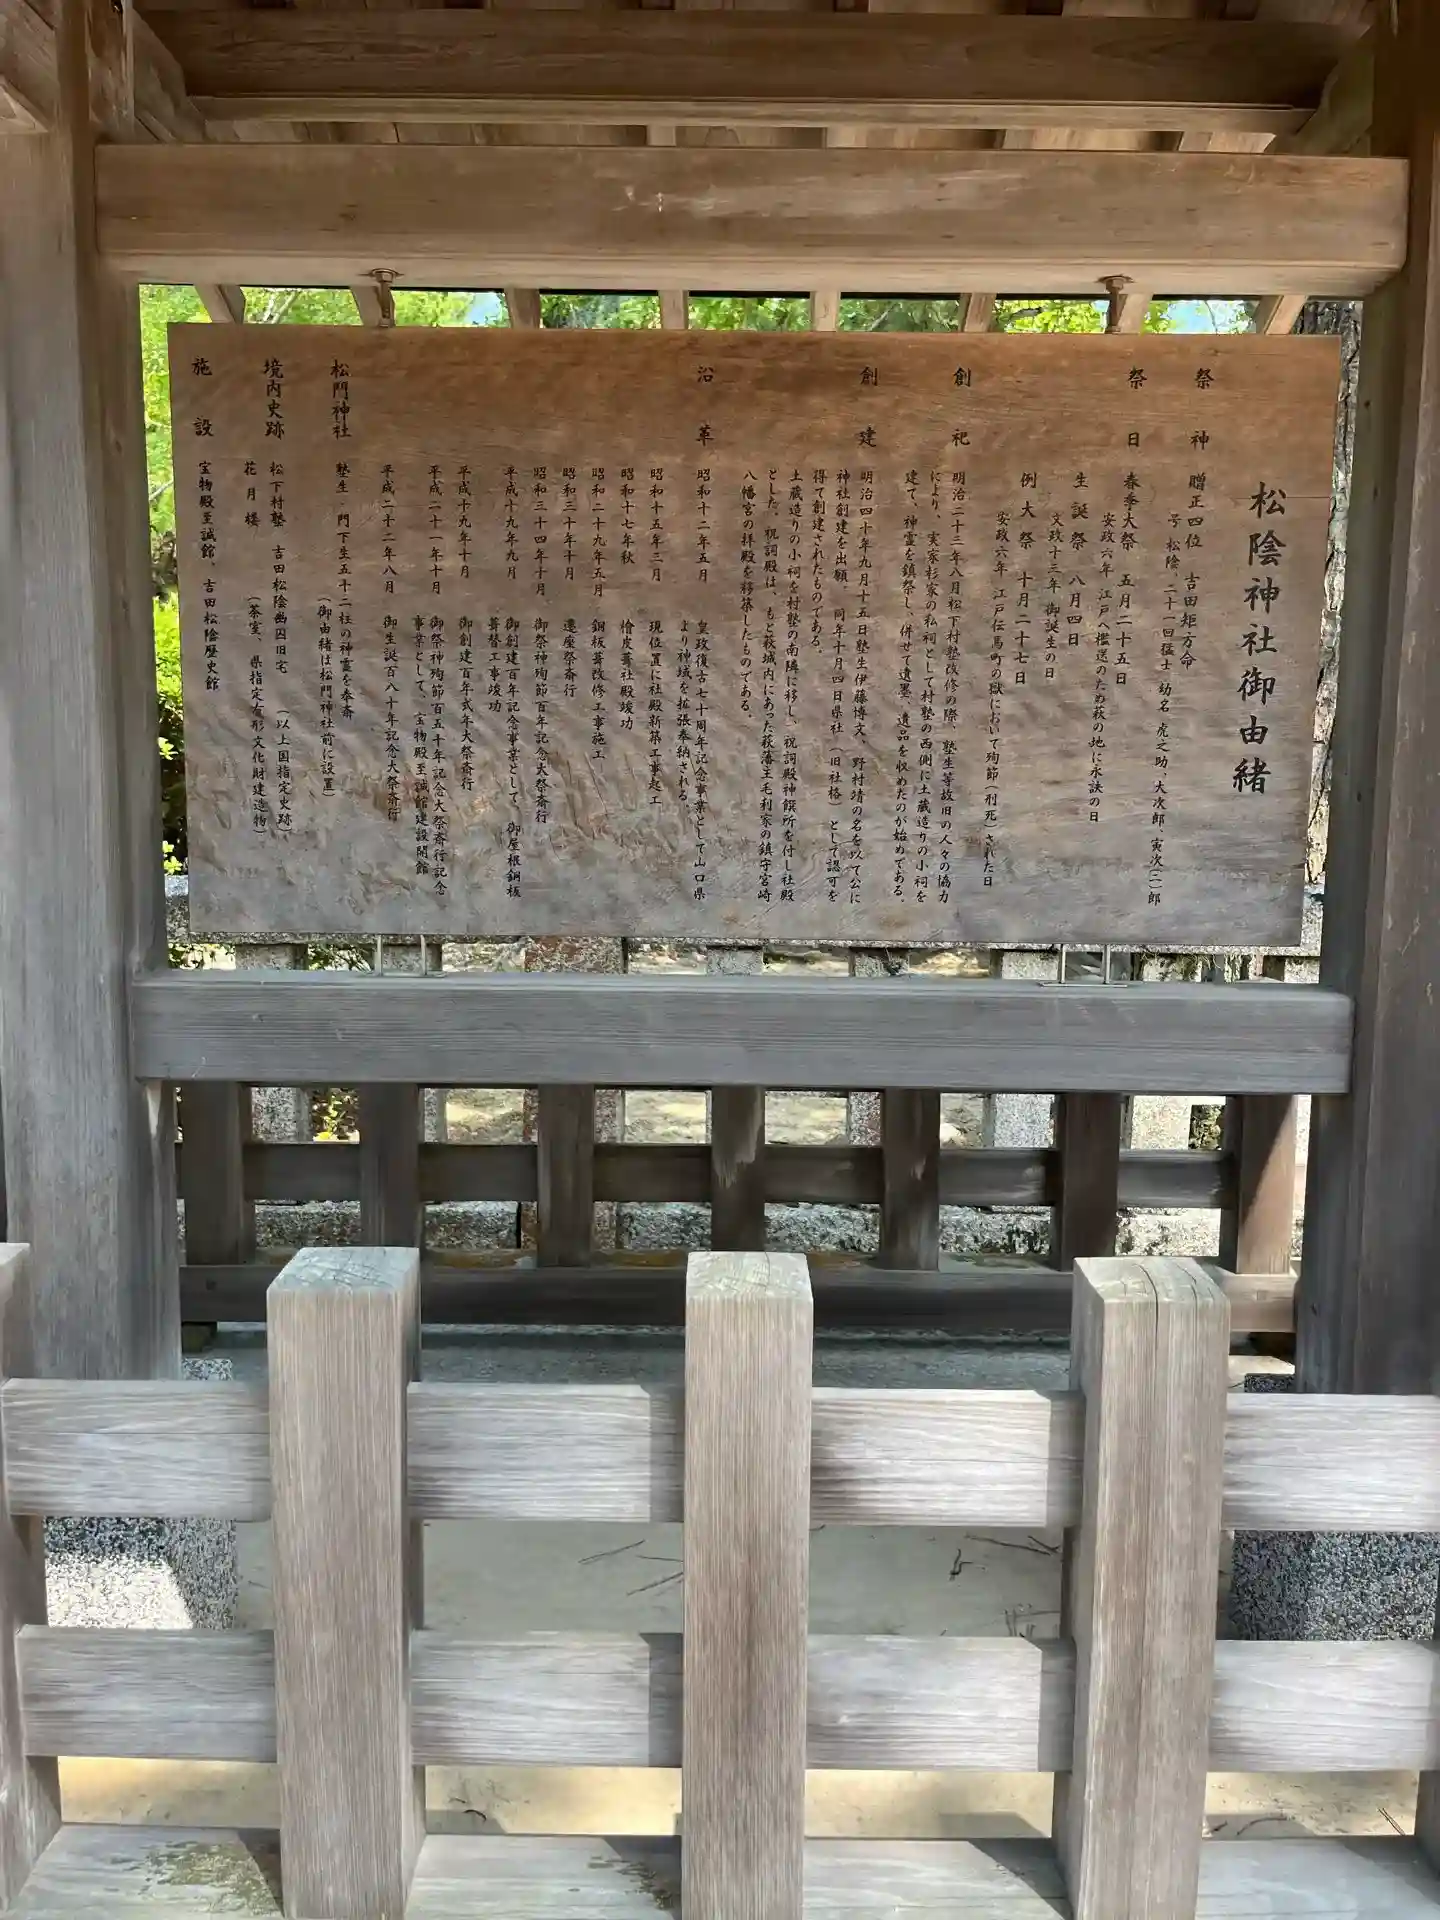 松陰神社御由緒
祭神 贈正四位 吉田矩方命
号 松陰、二十一回猛士 幼名 虎之助、大次郎、寅次(二)郎
祭日 春季大祭 五月二十五日
安政六年 江戸へ檻送のため萩の地に永訣の日
生誕祭 八月四日
文政十三年 御誕生の日
例大祭 十月二十七日
安政六年 江戸伝馬町の獄において殉節(刑死)された日
創祀 明治二十三年八月松下村塾改修の際、塾生等故旧の人々の協力
により、実家杉家の私祠として村塾の西側に土蔵造りの小祠を
建て、神霊を鎮祭し、併せて遺墨、遺品を収めたのが始めである。
創建 明治四十年九月十五日塾生伊藤博文、野村靖の名を以て公に
神社創建を出願。同年十月四日県社(旧社格)として認可を
得て創建されたものである。
土蔵造りの小祠を村塾の南隣に移し、祝詞殿神饌所を付し社殿
とした。祝詞殿は、もと萩城内にあった萩藩主毛利家の鎮守宮崎
八幡宮の拝殿を移築したものである。
沿革 昭和十二年五月 皇政復古七十周年記念事業として山口県
より神域を拡張奉納される。
昭和十五年三月 現位置に社殿新築工事起工
昭和十七年秋 檜皮葺社殿竣功
昭和二十九年五月 銅板葺改修工事施工
昭和三十年十月 遷座祭斎行
昭和三十四年十月 御祭神殉節百年記念大祭斎行
平成十九年九月 御創建百年記念事業として、御屋根銅板
葺替工事竣功
平成十九年十月 御創建百年式年大祭斎行
平成二十一年十月 御祭神殉節百五十年記念大祭斎行記念
事業として、宝物殿至誠館建設開館
平成二十二年八月 御生誕百八十年記念大祭斎行
松門神社 塾生 門下生五十二柱の神霊を奉斎
(御由緒は松門神社前に設置)
境内史跡 松下村塾 吉田松陰幽囚旧宅 (以上国指定史跡)
花月楼 (茶室、県指定有形文化財建造物)
施設 宝物殿至誠館、吉田松陰歴史館